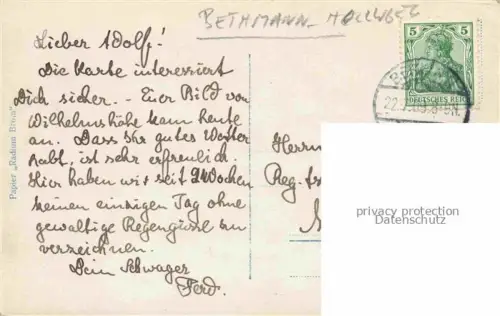 BETHMANN-HOLLWEG
5
DEUTSCHES REICH
Lieber Adolf!
Die Karte interessiert
Dich sicher. - Euer Bild von
Wilhelmshöhe kam heute
an. Dass Ihr gutes Wetter
habt, ist sehr erfreulich.
Hier haben wir seit 2 Wochen
keinen einzigen Tag ohne
gewaltige Regengüsse zu
verzeichnen.
Dein Schwager
Ferd.
Herrn
Reg.
privacy protection
Datenschutz
Papier „Radium Brom"